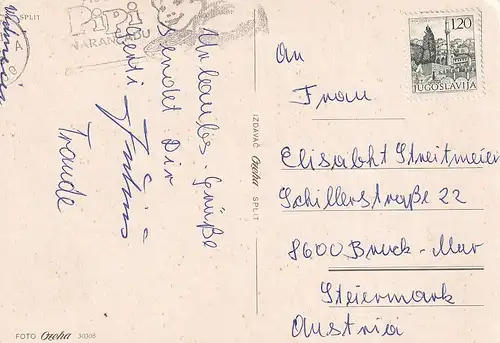 SPLIT
Pipi
NARANČADU
Urlaubs. Grüße
sendet Dir
Traude
IZDAVAČ Ozeha SPLIT
FOTO Ozeha 30308
1.20
JUGOSLAVIJA
An
Frau
Elisabht Streitmeier
Schillerstraße 22
8600 Bruck-Mur
Steiermark
Austria